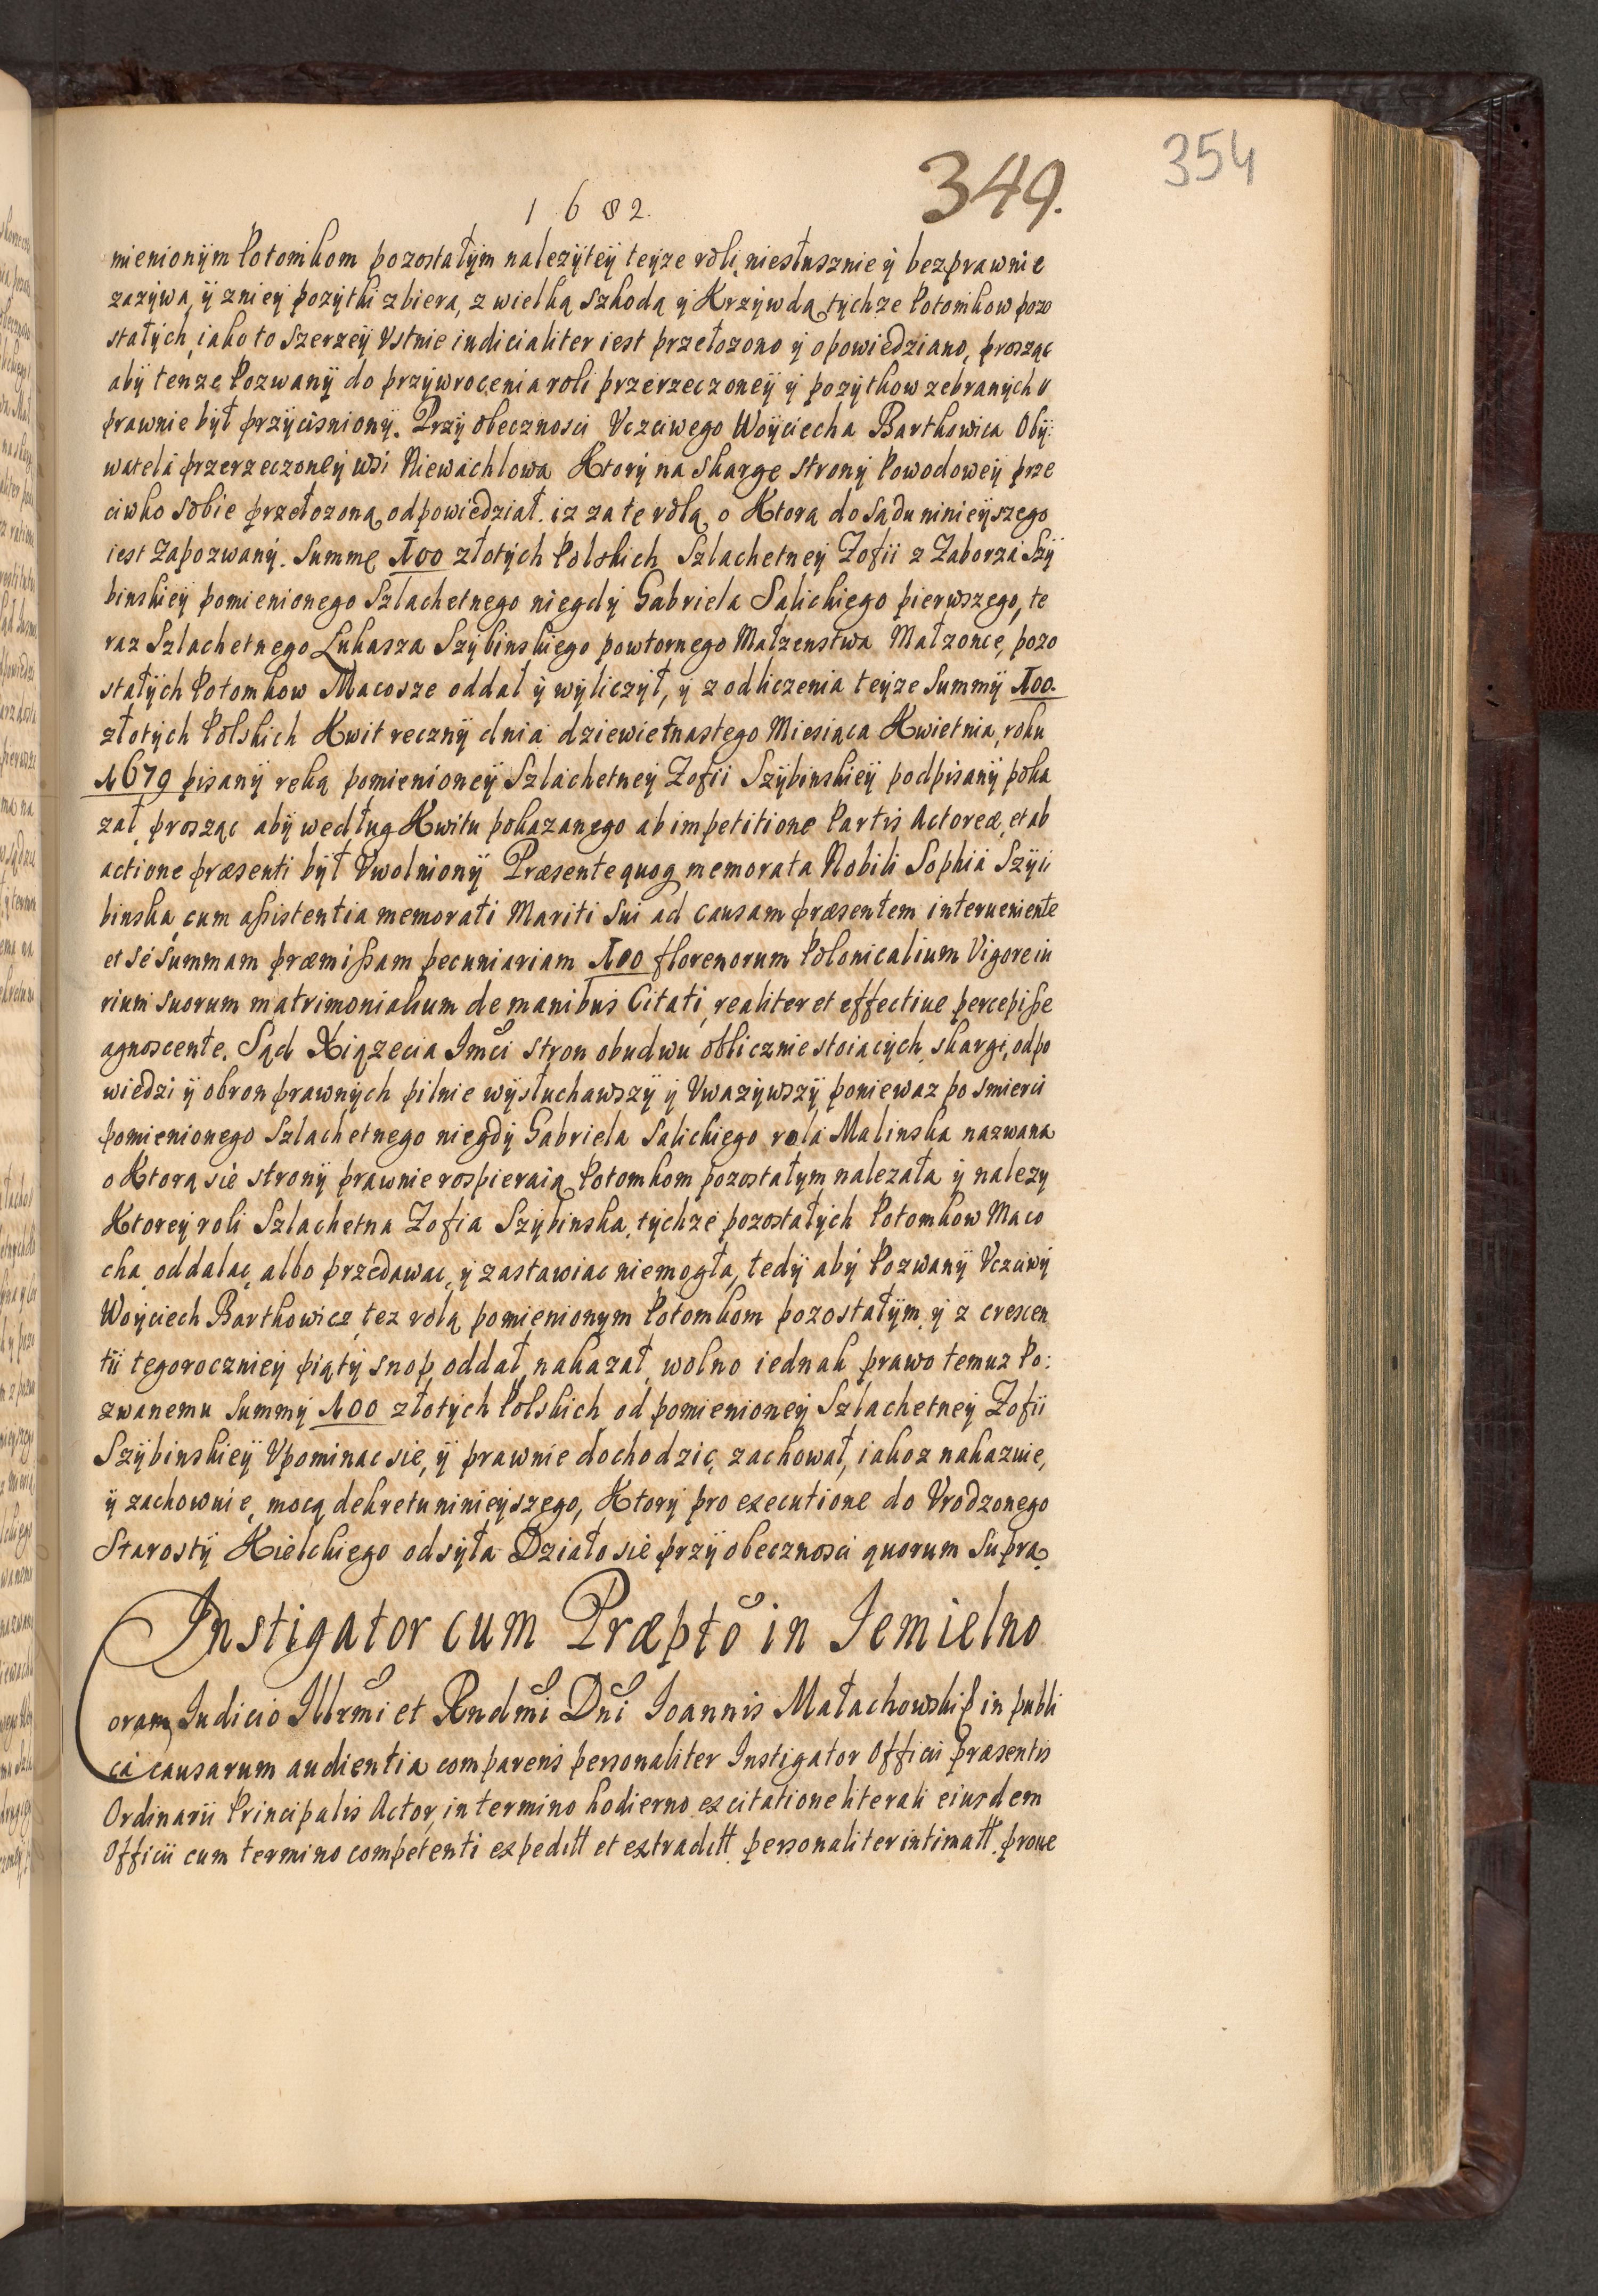 354
349.
1682.
mienionÿm Potomkom pozostałÿm nalezÿteÿ teÿze roli niesłusznie ÿ bezprawnie
zazÿwa, ÿ znieÿ pozÿtki zbiera, z wielką szkodą ÿ Krzÿwdą tÿchze Potomkow pozo
stałÿch, iako to szerzeÿ Vstnie iudicialiter iest przełozono ÿ opowiedziano, prosząc
abÿ tenze Pozwanÿ do przÿwrocenia roli przerzeczoneÿ ÿ pozÿtkow zebranÿch v
prawnie bÿł przÿcisnionÿ. Przÿ obecznosci Vczciwego Woÿciecha Barthowica Obÿ:
watela przerzeczoneÿ wsi Niewachlowa Ktorÿ na skargę stronÿ Powodoweÿ prze
ciwko sobie przełozoną odpowiedział. iz za te rolą o Ktora do sądu ninieÿszego
iest Zapozwanÿ. Summę 100 złotÿch Polskich Szlachetneÿ Zofii z Zaborza Szÿ
binskieÿ pomienionego Szlachetnego niegdÿ Gabriela Salickiego pierwszego, te
raz Szlachetnego Lukasza Szÿbinskiego powtornego Małzenstwa Małzonce, pozo
stałÿch Potomkow Macosze oddał ÿ wÿliczÿł, ÿ z odliczenia teÿze Summÿ 100.
złotÿch Polskich Kwit recznÿ dnia dziewietnastego Miesiąca Kwietnia, roku
1679 pisanÿ ręką pomienioneÿ Szlachetneÿ Zofii Szÿbinskieÿ podpisanÿ poka
zał, prosząc abÿ według Kwitu pokazanego ab impetitione Partis Actoreæ, et ab
actione præsenti bÿł Vwolnionÿ Præsente quoq memorata Nobili Sophia Szÿi
binska, cum assistentia memorati Mariti sui ad causam præsentem interueniente
et se summam præmissam pecuniariam 100 florenorum Polonicalium Vigore iu
rium suorum matrimonialium de manibus Citati, realiter et effectiue percepisse
agnoscente. Sąd Xiązecia Imci stron obudwu obliczniestoiącÿch, skargi, odpo
wiedzi ÿ obron prawnÿch pilnie wÿsłuchawszÿ ÿ Vwazÿwszÿ poniewaz po smierci
pomienionego Szlachetnego niegdÿ Gabriela Salickiego rola Malinska nazwana
o Ktorą sie stronÿ prawnie rospieraią Potomkom pozostałym nalezała ÿ nalezy
Ktoreÿ roli Szlachetna Zofia Szÿbinska, tÿchze pozostałÿch Potomkow Maco
cha oddalac, albo przedawac, ÿ zastawiac niemogła, tedÿ abÿ Pozwanÿ Vczciwÿ
Woÿciech Barthowicz, tez rolą pomienionym Potomkom pozostałÿm, ÿ z crescen
tii tegoroczneÿ piątÿ snop, oddał, nakazał, wolno iednak prawo temuz Po:
zwanemu summÿ 100 złotÿch Polskich od pomienioneÿ Szlachetneÿ Zofii
Szÿbinskieÿ Vpominac sie, ÿ prawnie dochodzic, zachował, iakoz nakazuie,
ÿ zachowuie, mocą dekretu ninieÿszego, Ktorÿ pro executione do Vrodzonego
Starostÿ Kielckiego odsÿła Działo sie przÿ obecznosci quorum supra
Instigator cum Præptō in Iemielno
Coram Iudicio Illrmi et Rndmi Dni Ioannis Małachowski in publi
ca causarum audientia comparens personaliter Instigator Officii præsentis
Ordinarii Principalis Actor, in termino hodierno ex citatione literali eiusdem
Officii cum termino competenti expeditt et extraditt personaliter intimatt proue